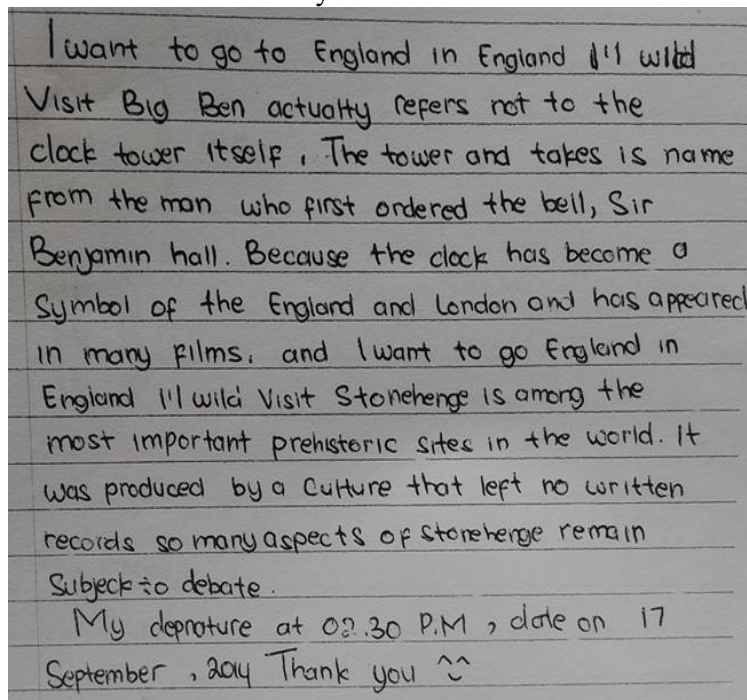 I want to go to England in England I'll wild
Visit Big Ben actualty repers not to the
clock tower itself, The tower and takes is name
From the man who first ordered the bell, Sir
Benjamin hall. Because the clock has become a
Symbol of the England and London and has appeared
in many films. and I want to go England in
England I'll wild Visit Stonehenge is among the
most important prehistoric sites in the world. It
was produced by a Culture that left no written
records so many aspects of stonehenge remain
Subjeck to debate.
My deprature at 02.30 P.M, date on 17
September, 2014 Thank you ^^